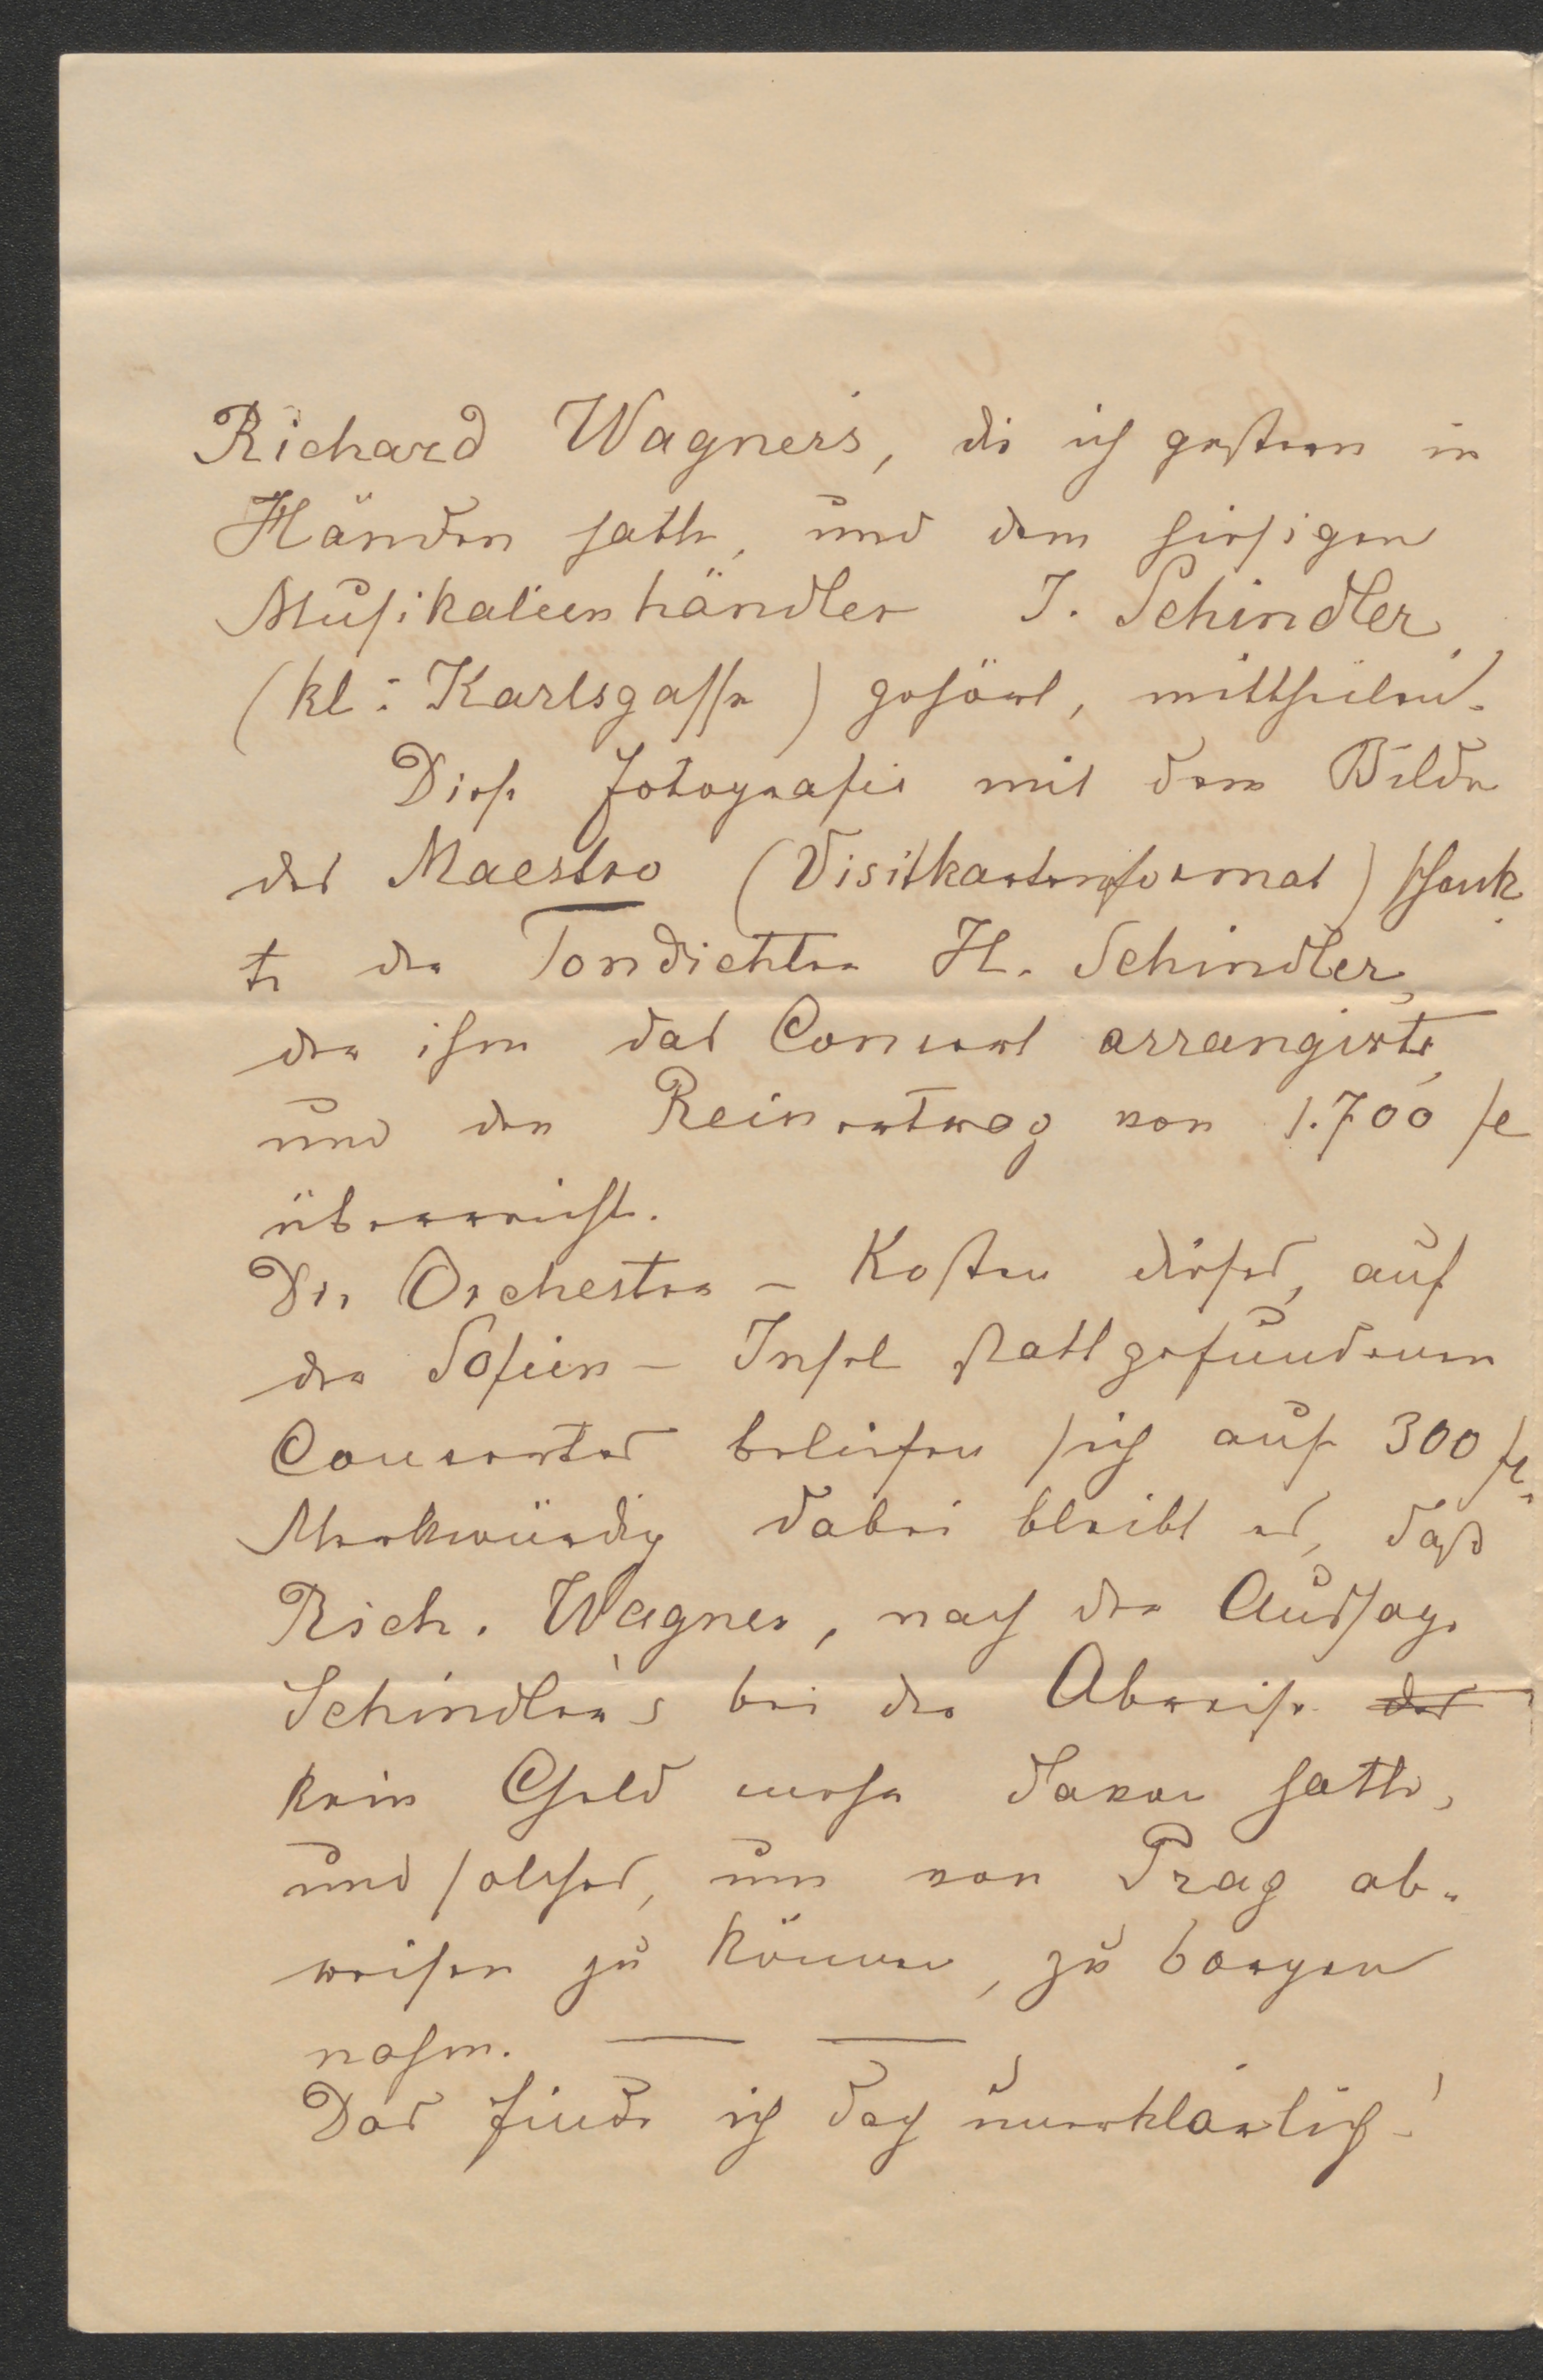 Richard Wagner's, die ich gestern in
Händen hatte, und dem hiesigen
Musikalienhändler J. Schindler,
(kl: Karlsgasse) gehört, mittheilen.
Diese Fotografie mit dem Bilde
des Maestro (Visitkartenformat) schenk
te der Tondichter H. Schindler,
der ihm das Concert arrangirte,
und den Reinertrag von 1.700 fl
überreicht.
Die Orchester - Kosten dieses, auf
der Sofien - Insel stattgefundenen
Concertes beliefen sich auf 300 fl.
Merkwürdig dabei bleibt es, daß
Rich. Wagner, nach der Aussage
Schindler's bei der Abreise des
kein Geld mehr davon hatte,
und solches, um von Prag ab-
reisen zu können, zu borgen
nahm. — —
Das finde ich doch unerklärlich!